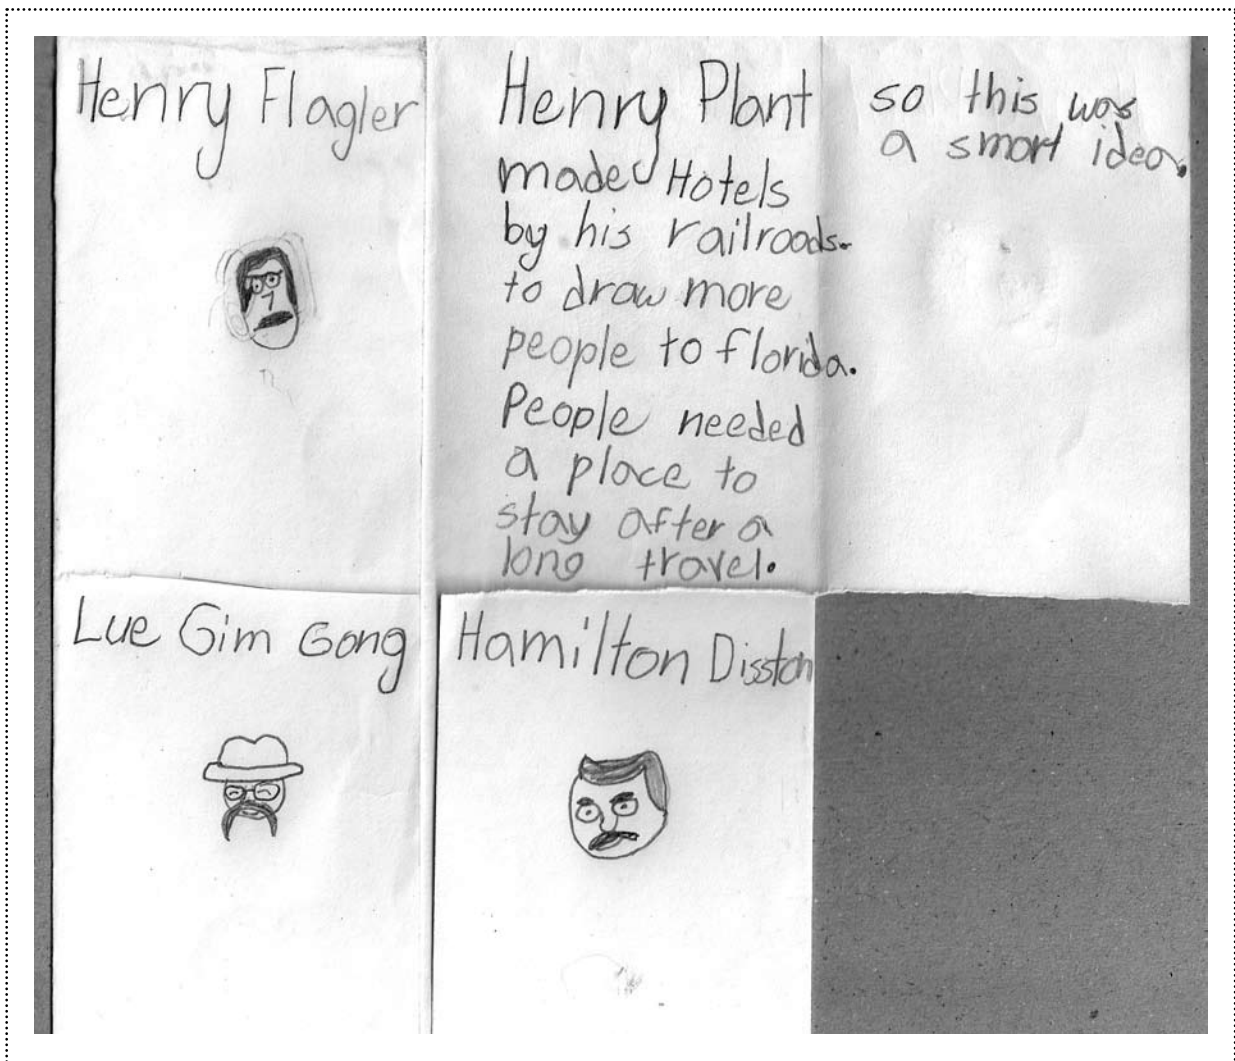 Henry Flagler
Henry Plant
made Hotels
by his railroads.
to draw more
people to florida.
People needed
a place to
stay after a
long travel.
so this was
a smart idea.
Lue Gim Gong
Hamilton Disston